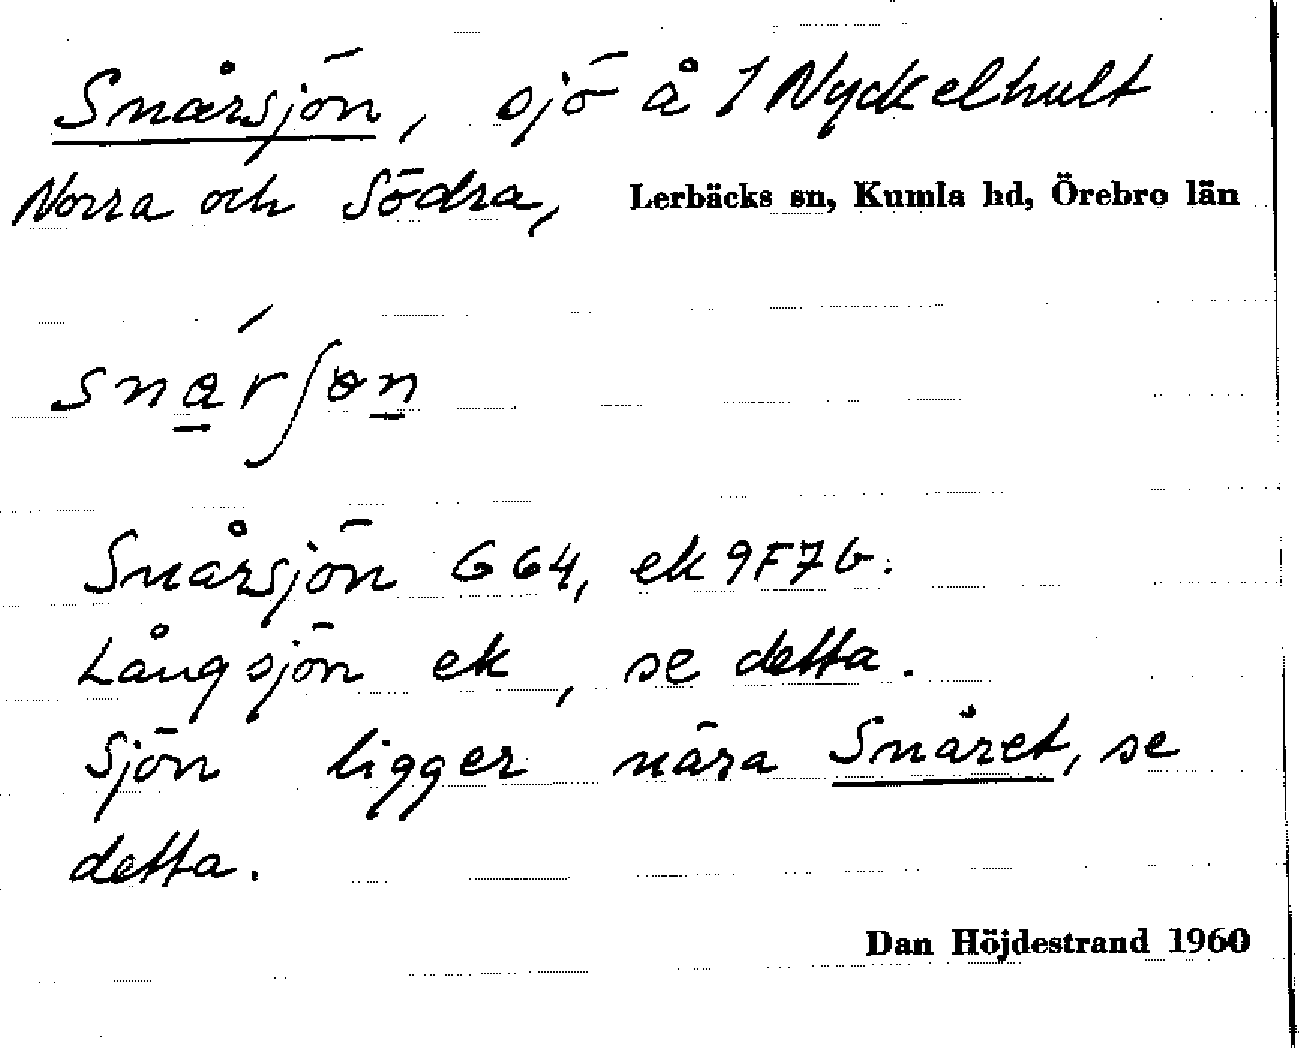 Snårsjön, sjö å 1 Nyckelhult
Norra och Södra, Lerbäcks sn, Kumla hd, Örebro län
snárʃɵn
Snårsjön G64, ek 9F7b.
Långsjön ek, se detta.
Sjön ligger nära Snåret, se
detta.
Dan Höjdestrand 1960